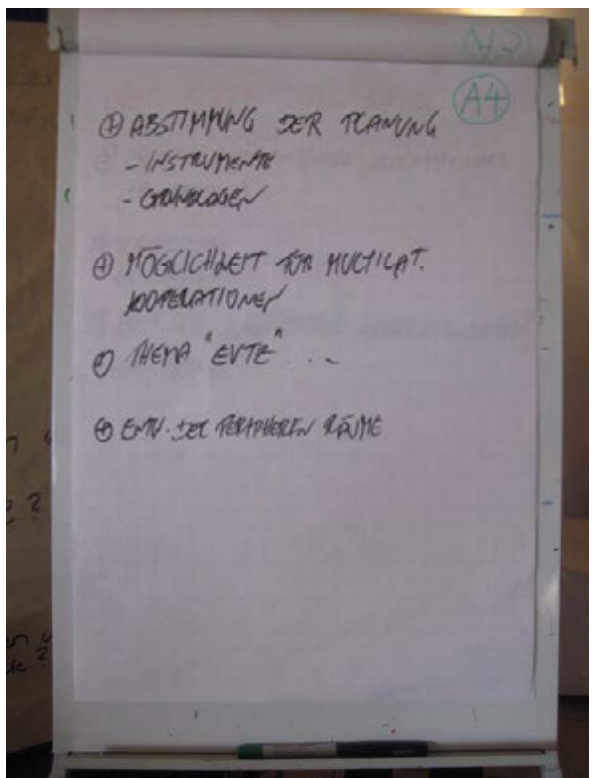 A4
⊕ ABSTIMMUNG DER PLANUNG
- INSTRUMENTE
- GRUNDLAGEN
⊕ MÖGLICHKEIT FÜR MULTILAT.
KOOPERATIONEN
THEMA "EVTZ" ...
⊕ ENTW. DER PERIPHEREN RÄUME